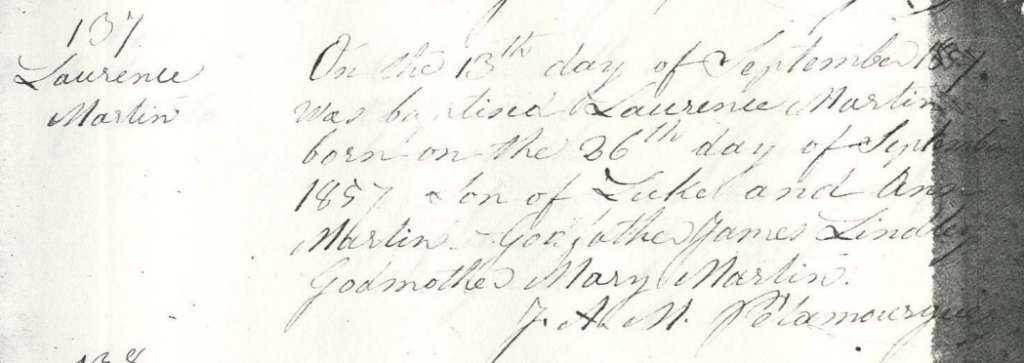 137
Laurence
Martin
On the 13th day of September 1857.
was baptised Laurence Martin
born on the 26th day of Septembe
1857 Son of Luke and Ann
Martin. Godfather James Lindley
Godmother Mary Martin.
J. A. M. Pélamourgues
138